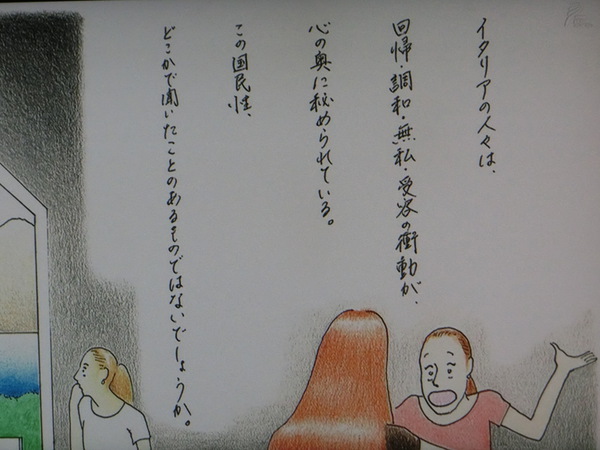 イタリアの人々は、
回帰・調和・無私・受容の衝動が、
心の奥に秘められている。
この国民性、
どこかで聞いたことのあるものではないでしょうか。